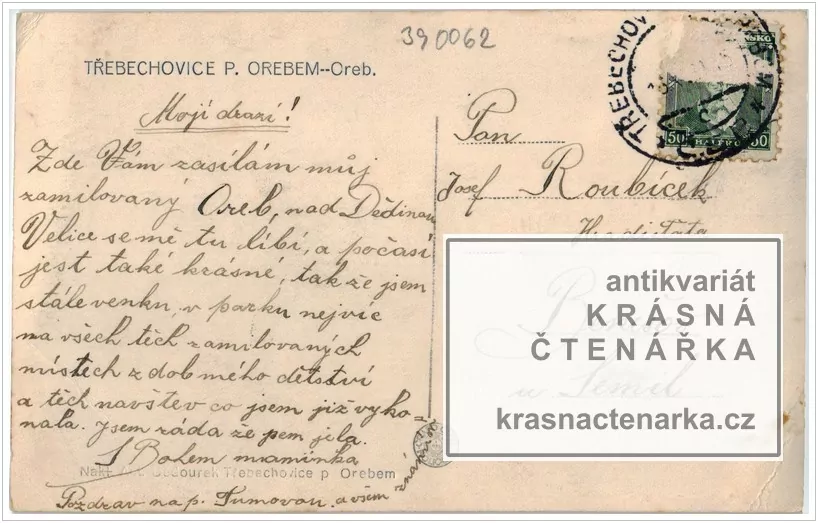 390062
TŘEBECHOVICE P. OREBEM--Oreb.
Moji drazí!
Zde Vám zasílám můj
zamilovaný Oreb, nad Dědinau
Velice se mě tu líbí, a počasí
jest také krásné, takže jsem
stále venku, v parku nejvíc
na všech těch zamilovaných
místech z dob mého dětství
a těch navštev co jsem již vyko-
nala. Jsem ráda že sem jela.
S Bohem maminka
Pozdrav na p. Tumovau, a všem
známým
Třebechovice p Orebem
TŘEBECHOV
50
50
Pan
Josef Roubíček
u Semil
antikvariát
KRÁSNÁ
ČTENÁŘKA
krasnactenarka.cz